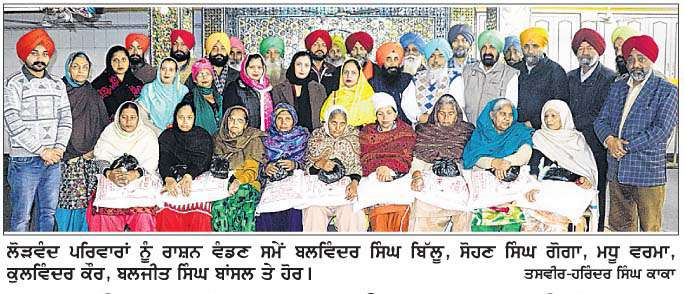 ਲੋੜਵੰਦ ਪਰਿਵਾਰਾਂ ਨੂੰ ਰਾਸ਼ਨ ਵੰਡਣ ਸਮੇਂ ਬਲਵਿੰਦਰ ਸਿੰਘ ਬਿੱਲੂ, ਸੋਹਣ ਸਿੰਘ ਗੋਗਾ, ਮਧੂ ਵਰਮਾ,
ਕੁਲਵਿੰਦਰ ਕੌਰ, ਬਲਜੀਤ ਸਿੰਘ ਬਾਂਸਲ ਤੇ ਹੋਰ। ਤਸਵੀਰ-ਹਰਿੰਦਰ ਸਿੰਘ ਕਾਕਾ